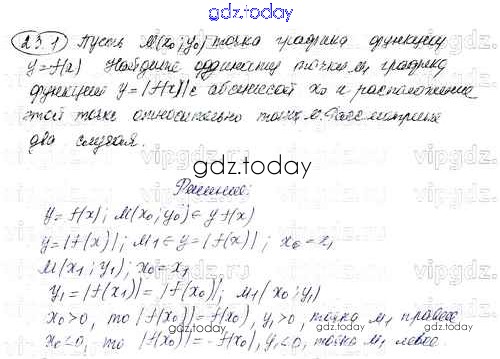 gdz.today
23.1 Пусть M(x₀; y₀) точка графика функции
y=f(x) Найдите ординату точки M₁ графика
функции y=|f(x)| с абсциссой x₀ и расположение
этой точки относительно точки M. Рассмотрите
два случая.
gdz.today
Решение:
y=f(x); M(x₀; y₀) ∈ y f(x)
y=|f(x)|; M₁ ∈ y=|f(x)|; x₀=x₁
M(x₁; y₁); x₀=x₁
y₁=|f(x₁)|=|f(x₀)|; M₁(x₀; y₁)
x₀>0, то |f(x₀)|=f(x₀), y₁>0, точка M₁ правее
x₀<0, то |f(x₀)|=-f(x₀), y₁<0, точка M₁ левее.
gdz.today